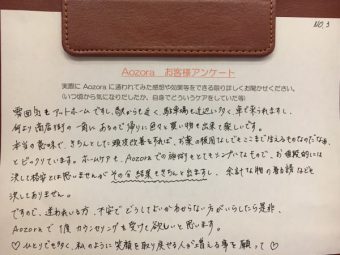 NO.3
Aozora お客様アンケート
実際に Aozora に通われてみた感想や効果等をできる限り詳しくお聞かせください。
(いつ頃から気になりだしたか、自身でどういうケアをしていた等)
雰囲気もアットホームですし、駅からも近く、駐車場も近辺に多く、車で来られますし、
何より商店街の一角にあるので帰りに色々と買い物も出来て楽しいです。
本当の意味で、きちんとした頭皮改善をすれば、お薬の服用なしでもここまで生えるものなのだなあ、
とビックリしています。ホームケアも、Aozoraでの施術もとてもシンプルなもので、お値段的には
決して格安とは思いませんがその分結果もきちんと出ますし、余計な物の売る話なども
決してありません。
ですので、迷われている方、不安でどうしてよいかわからない方がいらしたら是非、
Aozoraで1度カウンセリングを受けて欲しいと思います。
♡ひとりでも多く、私のように笑顔を取り戻せる人が増える事を願って♡